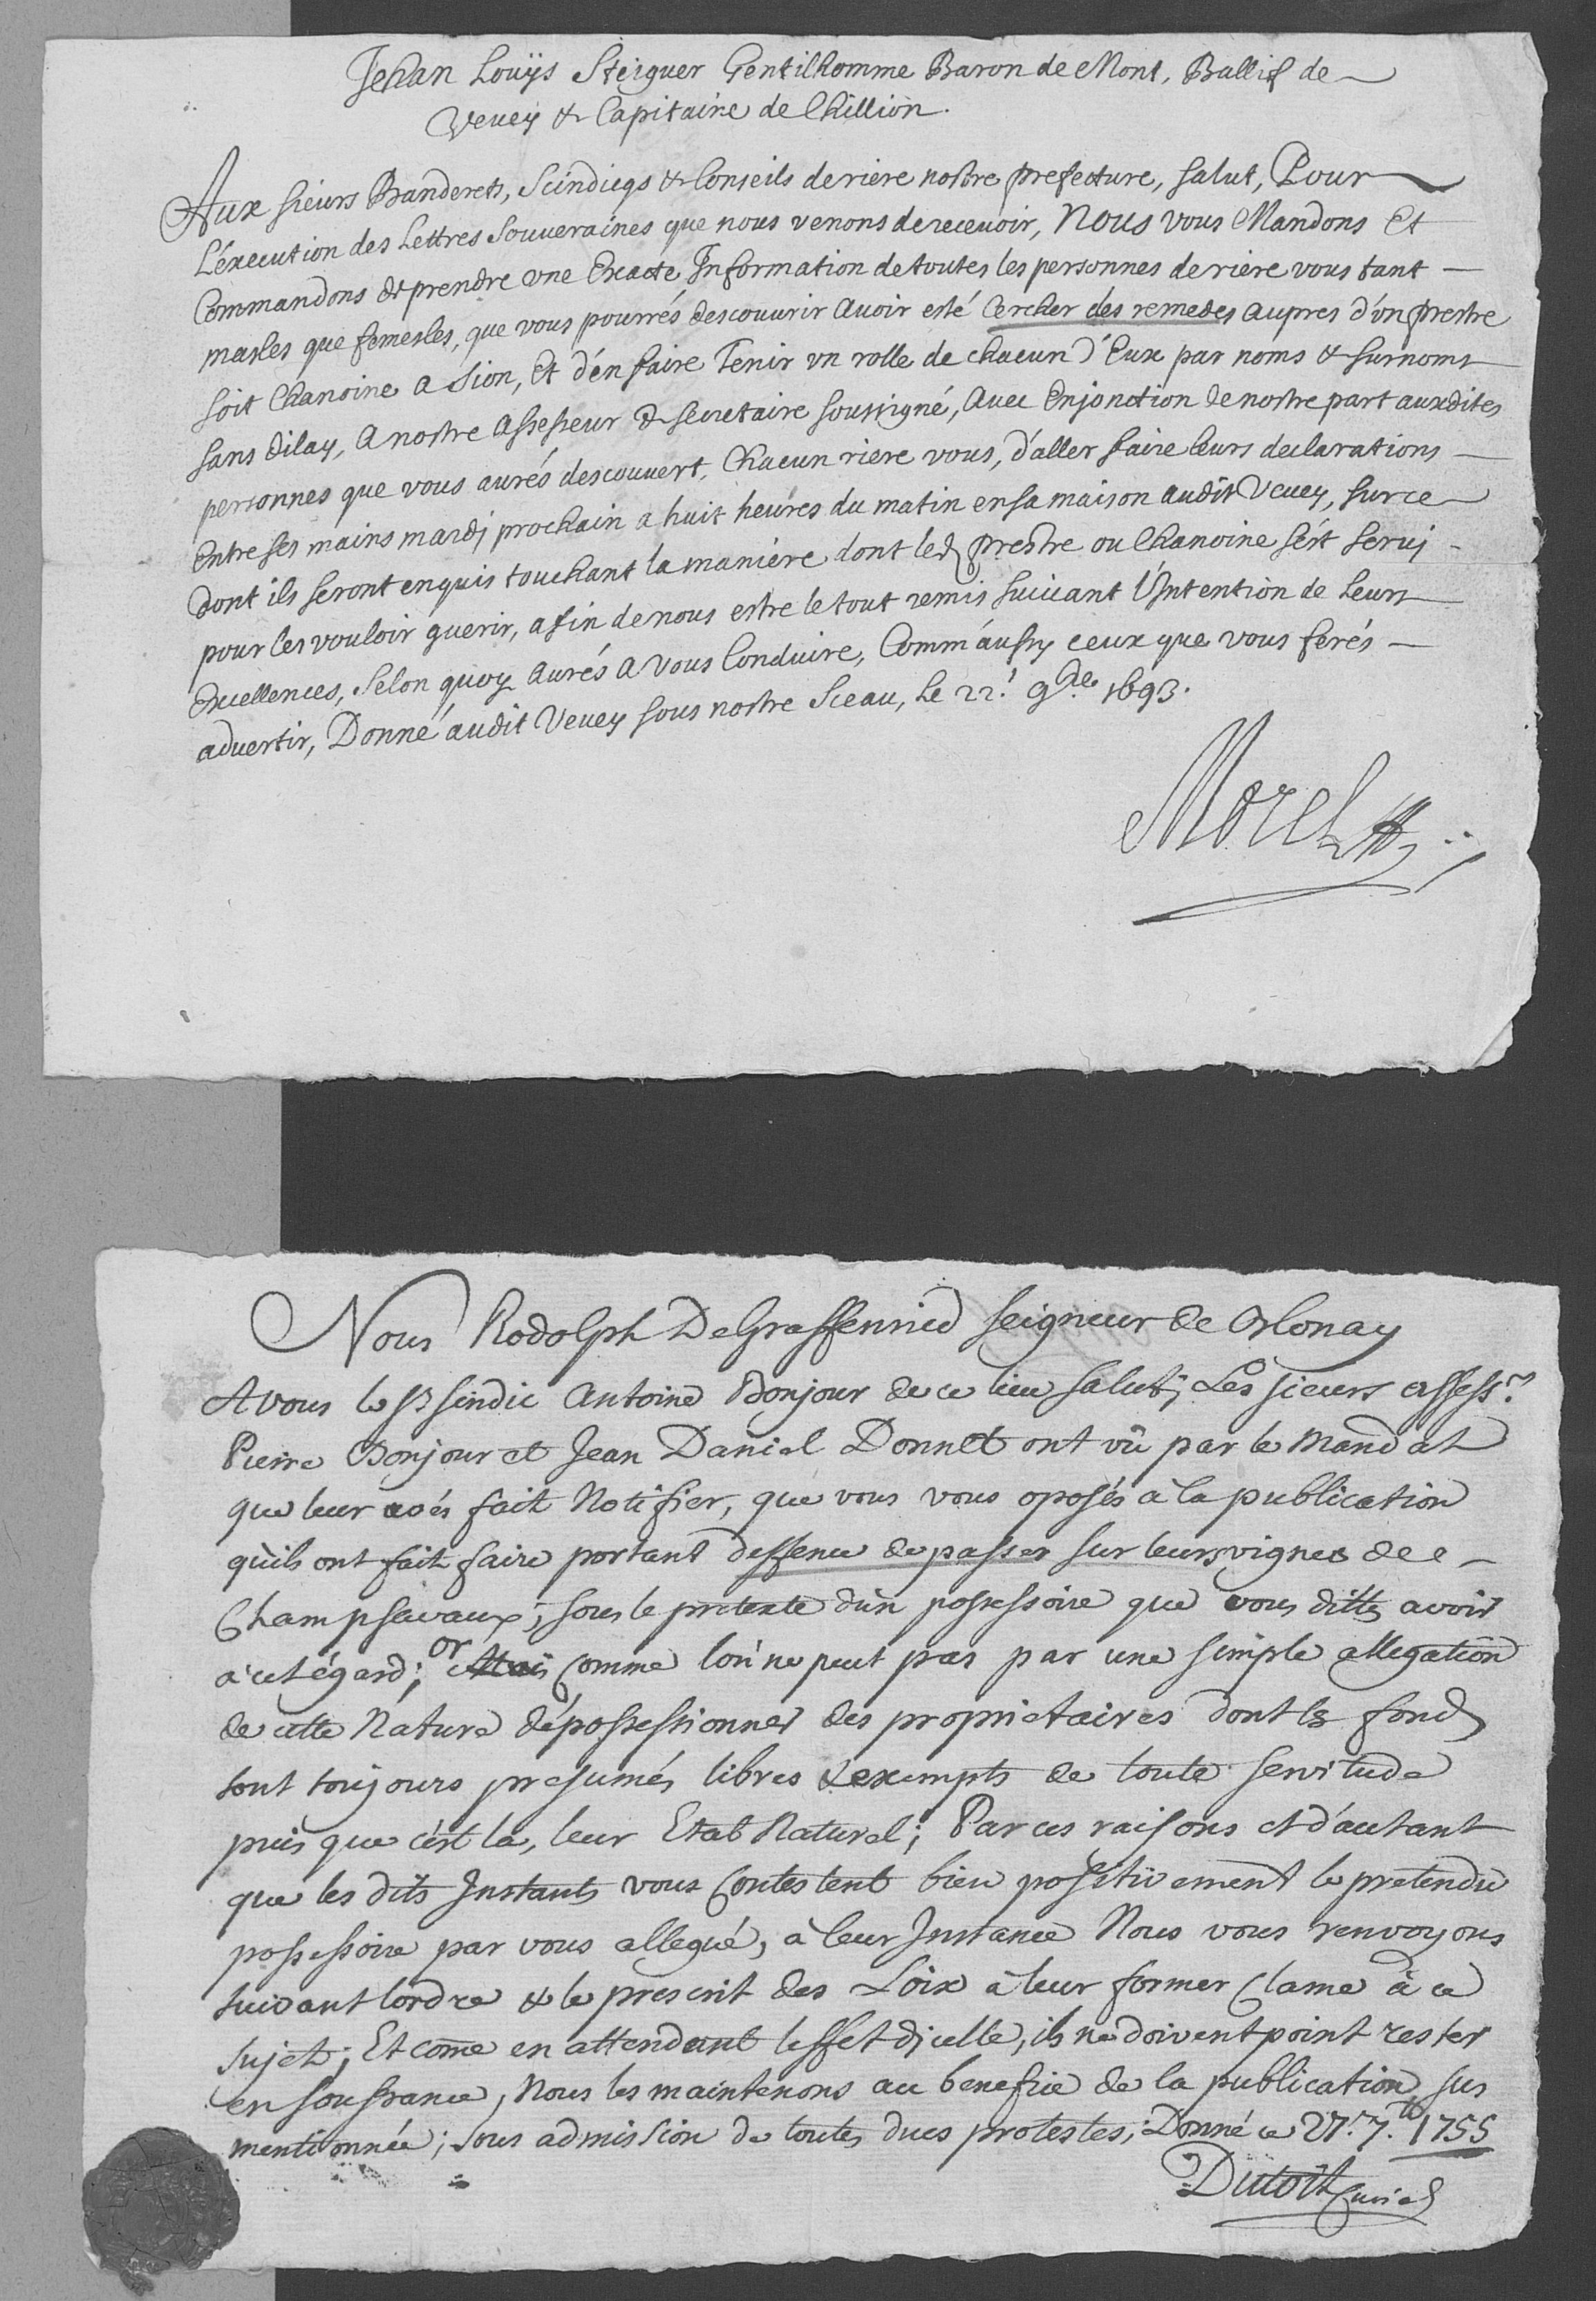 Jehan Louÿs Steiguer Gentilhomme Baron de Mont, Ballif de
Vevey & Capitaine de Chillion.
Aux sieurs Banderets, Scindicqs & Conseils deriere nostre prefecture, salut, Pour
L'éxecution des Lettres Souveraines que nous venons de recevoir, Nous vous Mandons Et
Commandons de prendre vne Exacte Information de toutes les personnes deriere vous tant
masles que femesles, que vous pourrés descouurir avoir esté Cercher des remedes aupres d'vn prestre
soit Chanoine a Sion, Et d'en faire Tenir vn rolle de chacun d'Eux par noms & surnoms
sans dilay, a nostre Assesseur & secretaire soussigné, Avec Enjonction de nostre part auxdites
personnes que vous aurés descouuert, Chacun riere vous, d'aller faire leurs declarations
Entre ses mains mardj prochain a huit heures du matin en sa maison audit Vevey, sur ce
dont ils seront enquis touchant la maniere dont led. prestre ou Chanoine s'est servj
pour les vouloir guerir, afin de nous estre le tout remis suivant l'Intention de Leurs
Excellences, Selon quoy aurés a vous Conduire, Comm'aussy ceux que vous ferés
advertir, Donné audit Vevey sous nostre Sceau, Le 22.e 9bre 1693.
Morel
Nous Rodolph DeGraffenried seigneur de Blonay
A vous le Sr sindic Antoine Bonjour de ce lieu salut; Les sieurs assessr.
Pierre Bonjour et Jean Daniel Donnet ont vû par le mandat
que leur avés fait Notifier, que vous vous oposés à la publication
qu'ils ont fait faire portant deffence de passer sur leurs vignes de
Champsavaux, sous le pretexte d'un possessoire que vous dittes avoir
à cet égard; or Mais Comme lon ne peut pas par une simple allegation
de cette Nature dépossessionner des proprietaires dont les fonds
sont toujours presumés libres & exempts de toute servitude
puis que c'est la, leur Etat Naturel; Par ces raisons et d'autant
que les dits Instants vous Contestent bien positivement le pretendu
possessoire par vous allegué, à leur Instance Nous vous renvoyons
suivant lordre & le prescrit des Loix à leur former Clame à ce
sujet; Et come en attendant leffet dicelle, ils ne doivent point rester
en soufrance, Nous les maintenons au benefice de la publication sus
mentionnée; sous admission de toutes dues protestes; Donné ce 27.e 7.bre 1755
Dutoit Curial